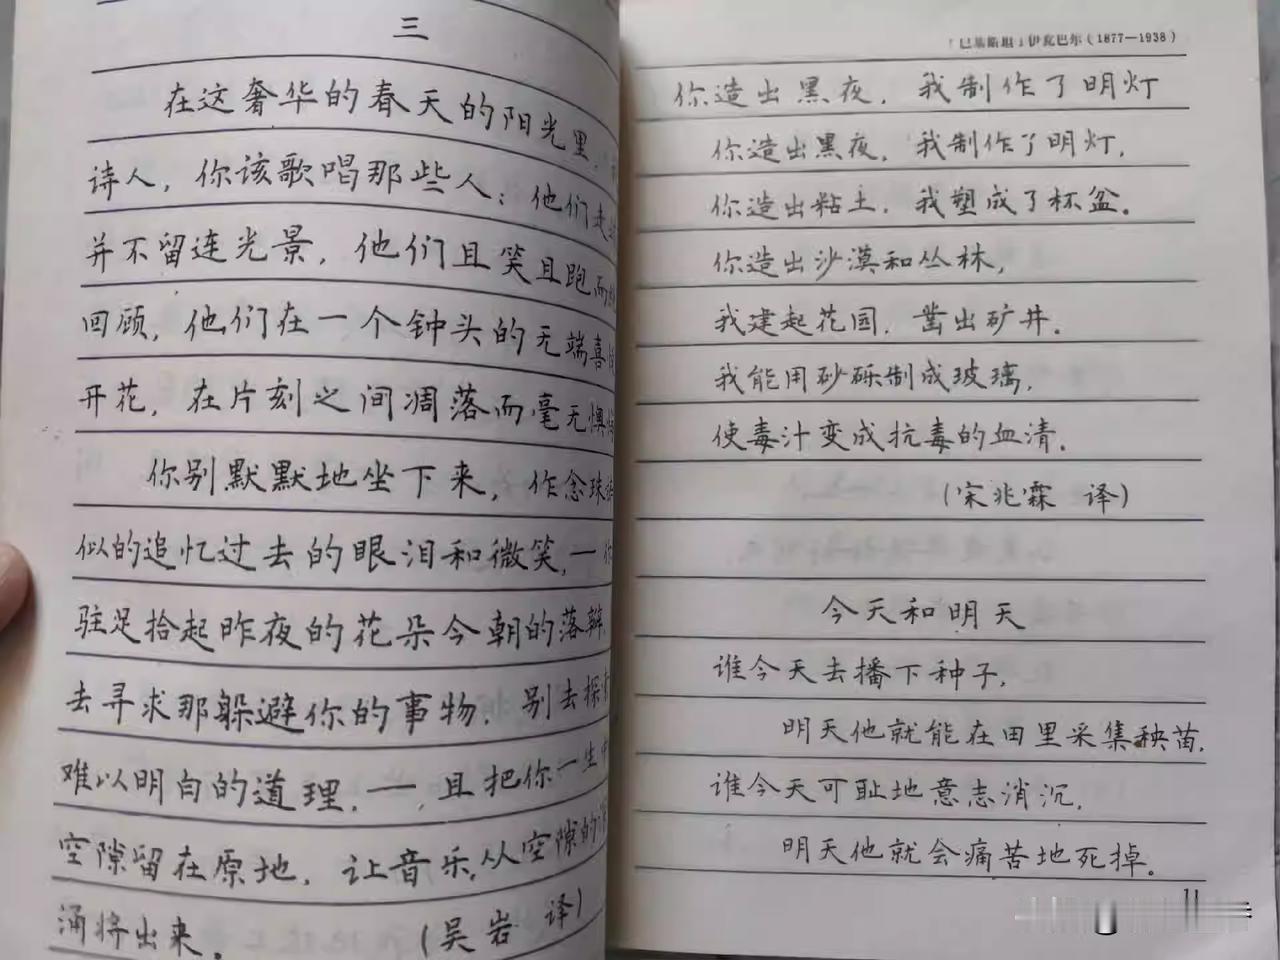 三
在这奢华的春天的阳光里，
诗人，你该歌唱那些人：他们走
并不留连光景，他们且笑且跑而
回顾，他们在一个钟头的无端喜
开花，在片刻之间凋落而毫无懊
你别默默地坐下来，作念珠
似的追忆过去的眼泪和微笑，一
驻足拾起昨夜的花朵今朝的落瓣，
去寻求那躲避你的事物，别去探
难以明白的道理，一，且把你一生
空隙留在原地，让音乐，从空隙的
涌将出来。（吴岩 译）
「巴基斯坦」伊克巴尔（1877—1938）
你造出黑夜，我制作了明灯
你造出黑夜，我制作了明灯，
你造出粘土，我塑成了杯盆。
你造出沙漠和丛林，
我建起花园，凿出矿井。
我能用砂砾制成玻璃，
使毒汁变成抗毒的血清。
（宋兆霖 译）
今天和明天
谁今天去播下种子，
明天他就能在田里采集秧苗，
谁今天可耻地意志消沉，
明天他就会痛苦地死掉。
11